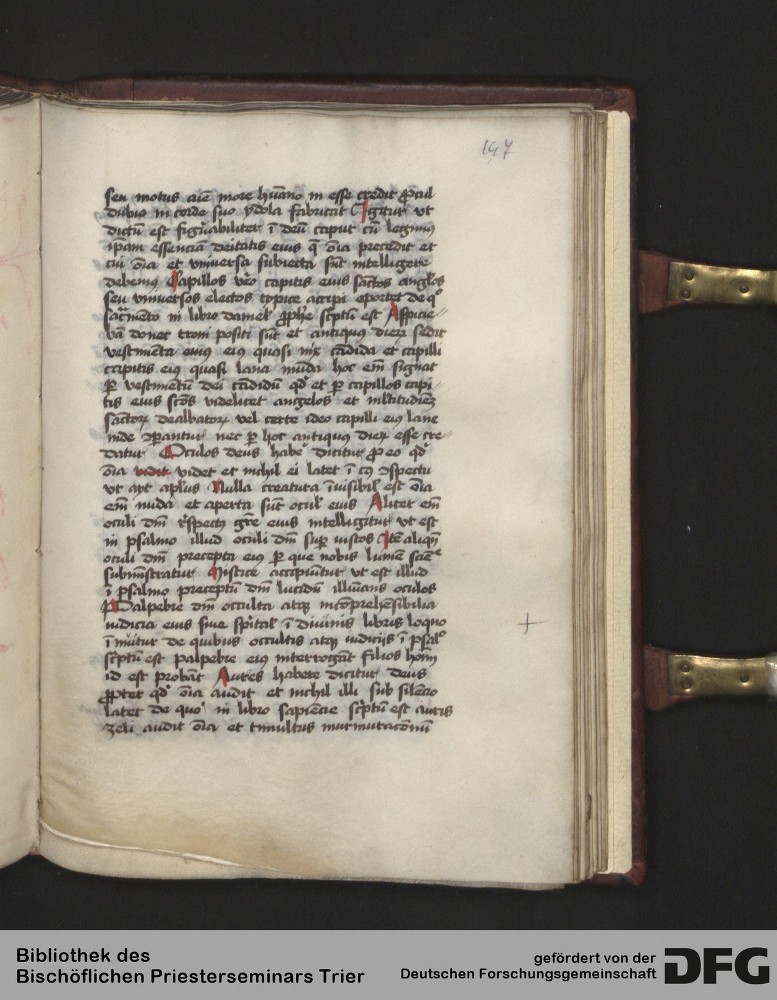 197
seu motus aīe more hūano in esse credit ꝓcul
dubio in corde suo ydola fabricat Igitur ut
dictū est figurabiliter ī deū caput cū legimus
ip̄am essenciam deitatis eius q̄ oīa precedit et
cui oīa et universa subiecta sūt intelligere
debemus Capillos vero capitis eius sāctos angl̄os
seu universos electos typice accipi oportet de qº
sacr̄mento in libro daniel ꝓphe sc̄ptū est Aspicie
bā donec troni positi sūt et antiquus dierꝝ sedit
vestimēta eius quasi nix cādida et capilli
capitis eius quasi lana mūda hoc em̄ signat
ꝑ vestimētū dei cādidū qd̓ et ꝑ capillos capi
tis eius scōs videlicet angelos et multitudinē
sāctorꝝ dealbatorꝝ vel certe ideo capilli eius lane
inde ꝯparantur nec ꝑ hoc antiquus dierꝝ esse cre
datur Oculos deus habe dicitur ꝓ eo qd̓
oīa vidit videt et nichil ei latet ī cuius ꝯspectu
ut ayt apl̄us Nulla creatura īvisibil̓ est oīa
em̄ nuda et aperta sūt ocul̓ eius Aliter em̄
oculi dn̄i respectus gr̄e eius intelligitur ut est
in psalmo illud oculi dn̄i suꝑ iustos Itē aliqn̄
oculi dn̄i precepta eius ꝑ que nobis lumē sciē
subministratur Mistice accipiūtur ut est illud
ī psalmo preceptū dn̄i lucidū illuīans oculos
Palpebre dn̄i occulta atqꝫ incōprehēsibilia
iudicia eius sive spūtal̓ ī divinis libris loquo
de quibus occultis atqꝫ iudicijs ī psalº
sc̄ptū est palpebre eius interrogāt filios homī
id est probāt Aures habere dicitur deus
ꝓpter qd̓ oīa audit et nichil illi sub silēcio
latet de quo in libro sapiēcie sc̄ptū est auris
zeli audit oīa et tumultus murmuracōnū
Bibliothek des
Bischöflichen Priesterseminars Trier
gefördert von der
Deutschen Forschungsgemeinschaft
DFG